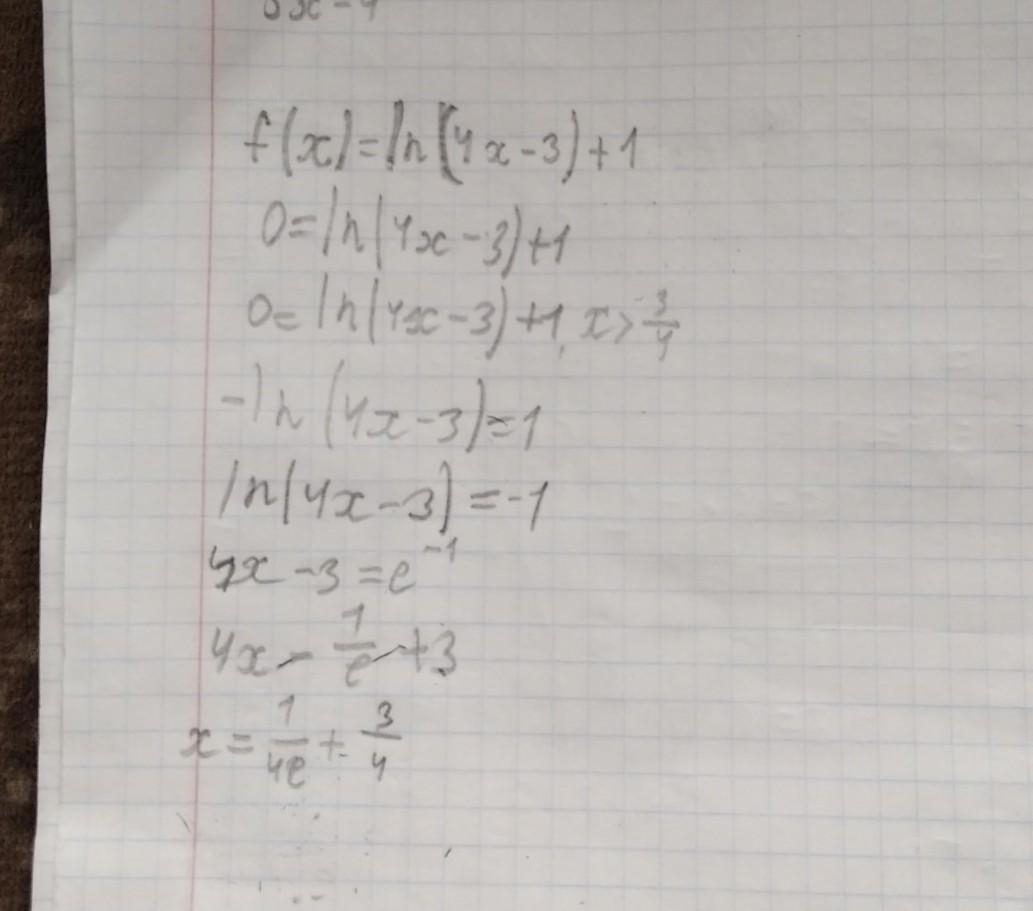 f(x)=ln(4x-3)+1
0=ln(4x-3)+1
0=ln(4x-3)+1, x>3/4
-ln(4x-3)=1
ln(4x-3)=-1
4x-3=e^-1
4x-1/e+3
x=1/4e+3/4